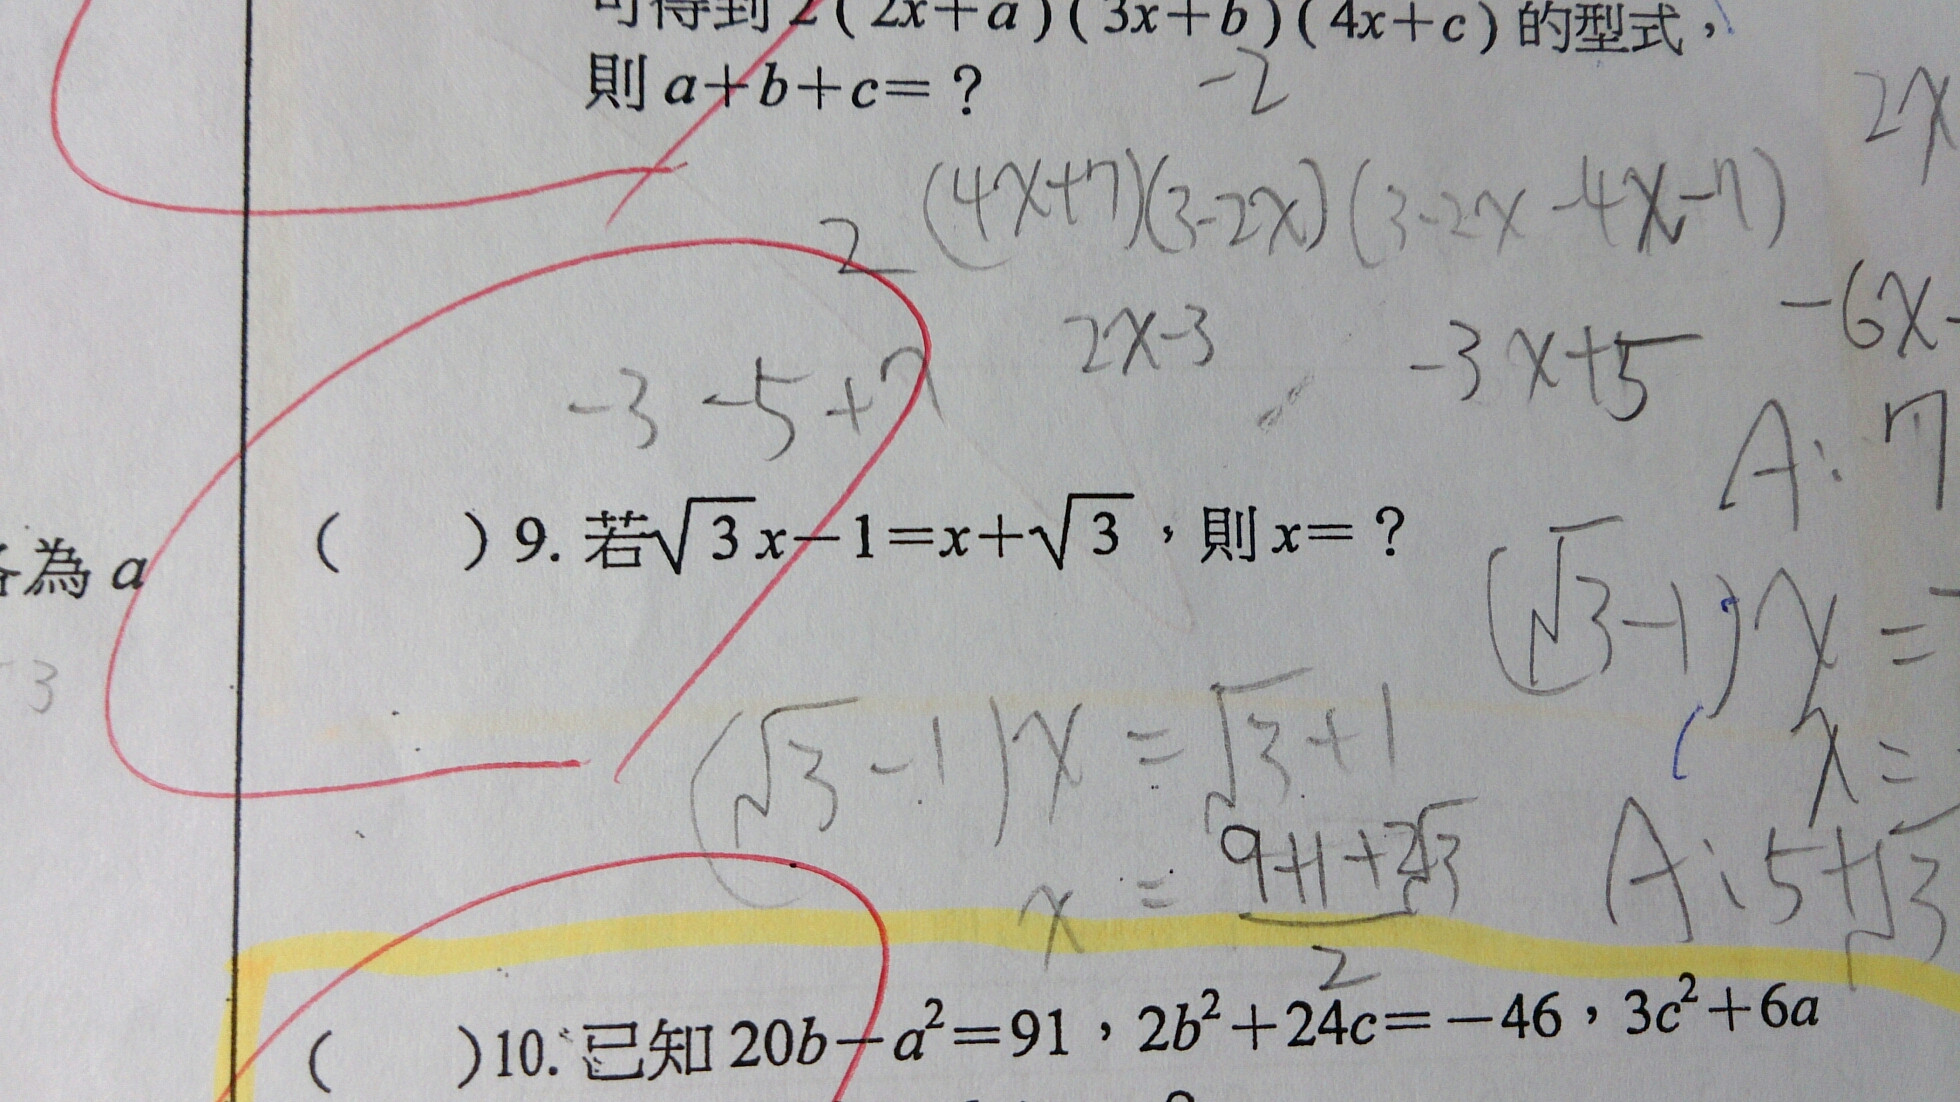 可得到2(2x+a)(3x+b)(4x+c)的型式，
則a+b+c=？
-2
2x
2(4x+7)(3-2x)(3-2x-4x-7)
-6x-
2x-3
-3x+5
-3-5+7
A:7
各為a
( )9.若√3x-1=x+√3，則x=？
(√3-1)x=
-3
(√3-1)x=√3+1
x=
x=(9+1+2√3)/2
A:5+√3
( )10.已知20b-a²=91，2b²+24c=-46，3c²+6a